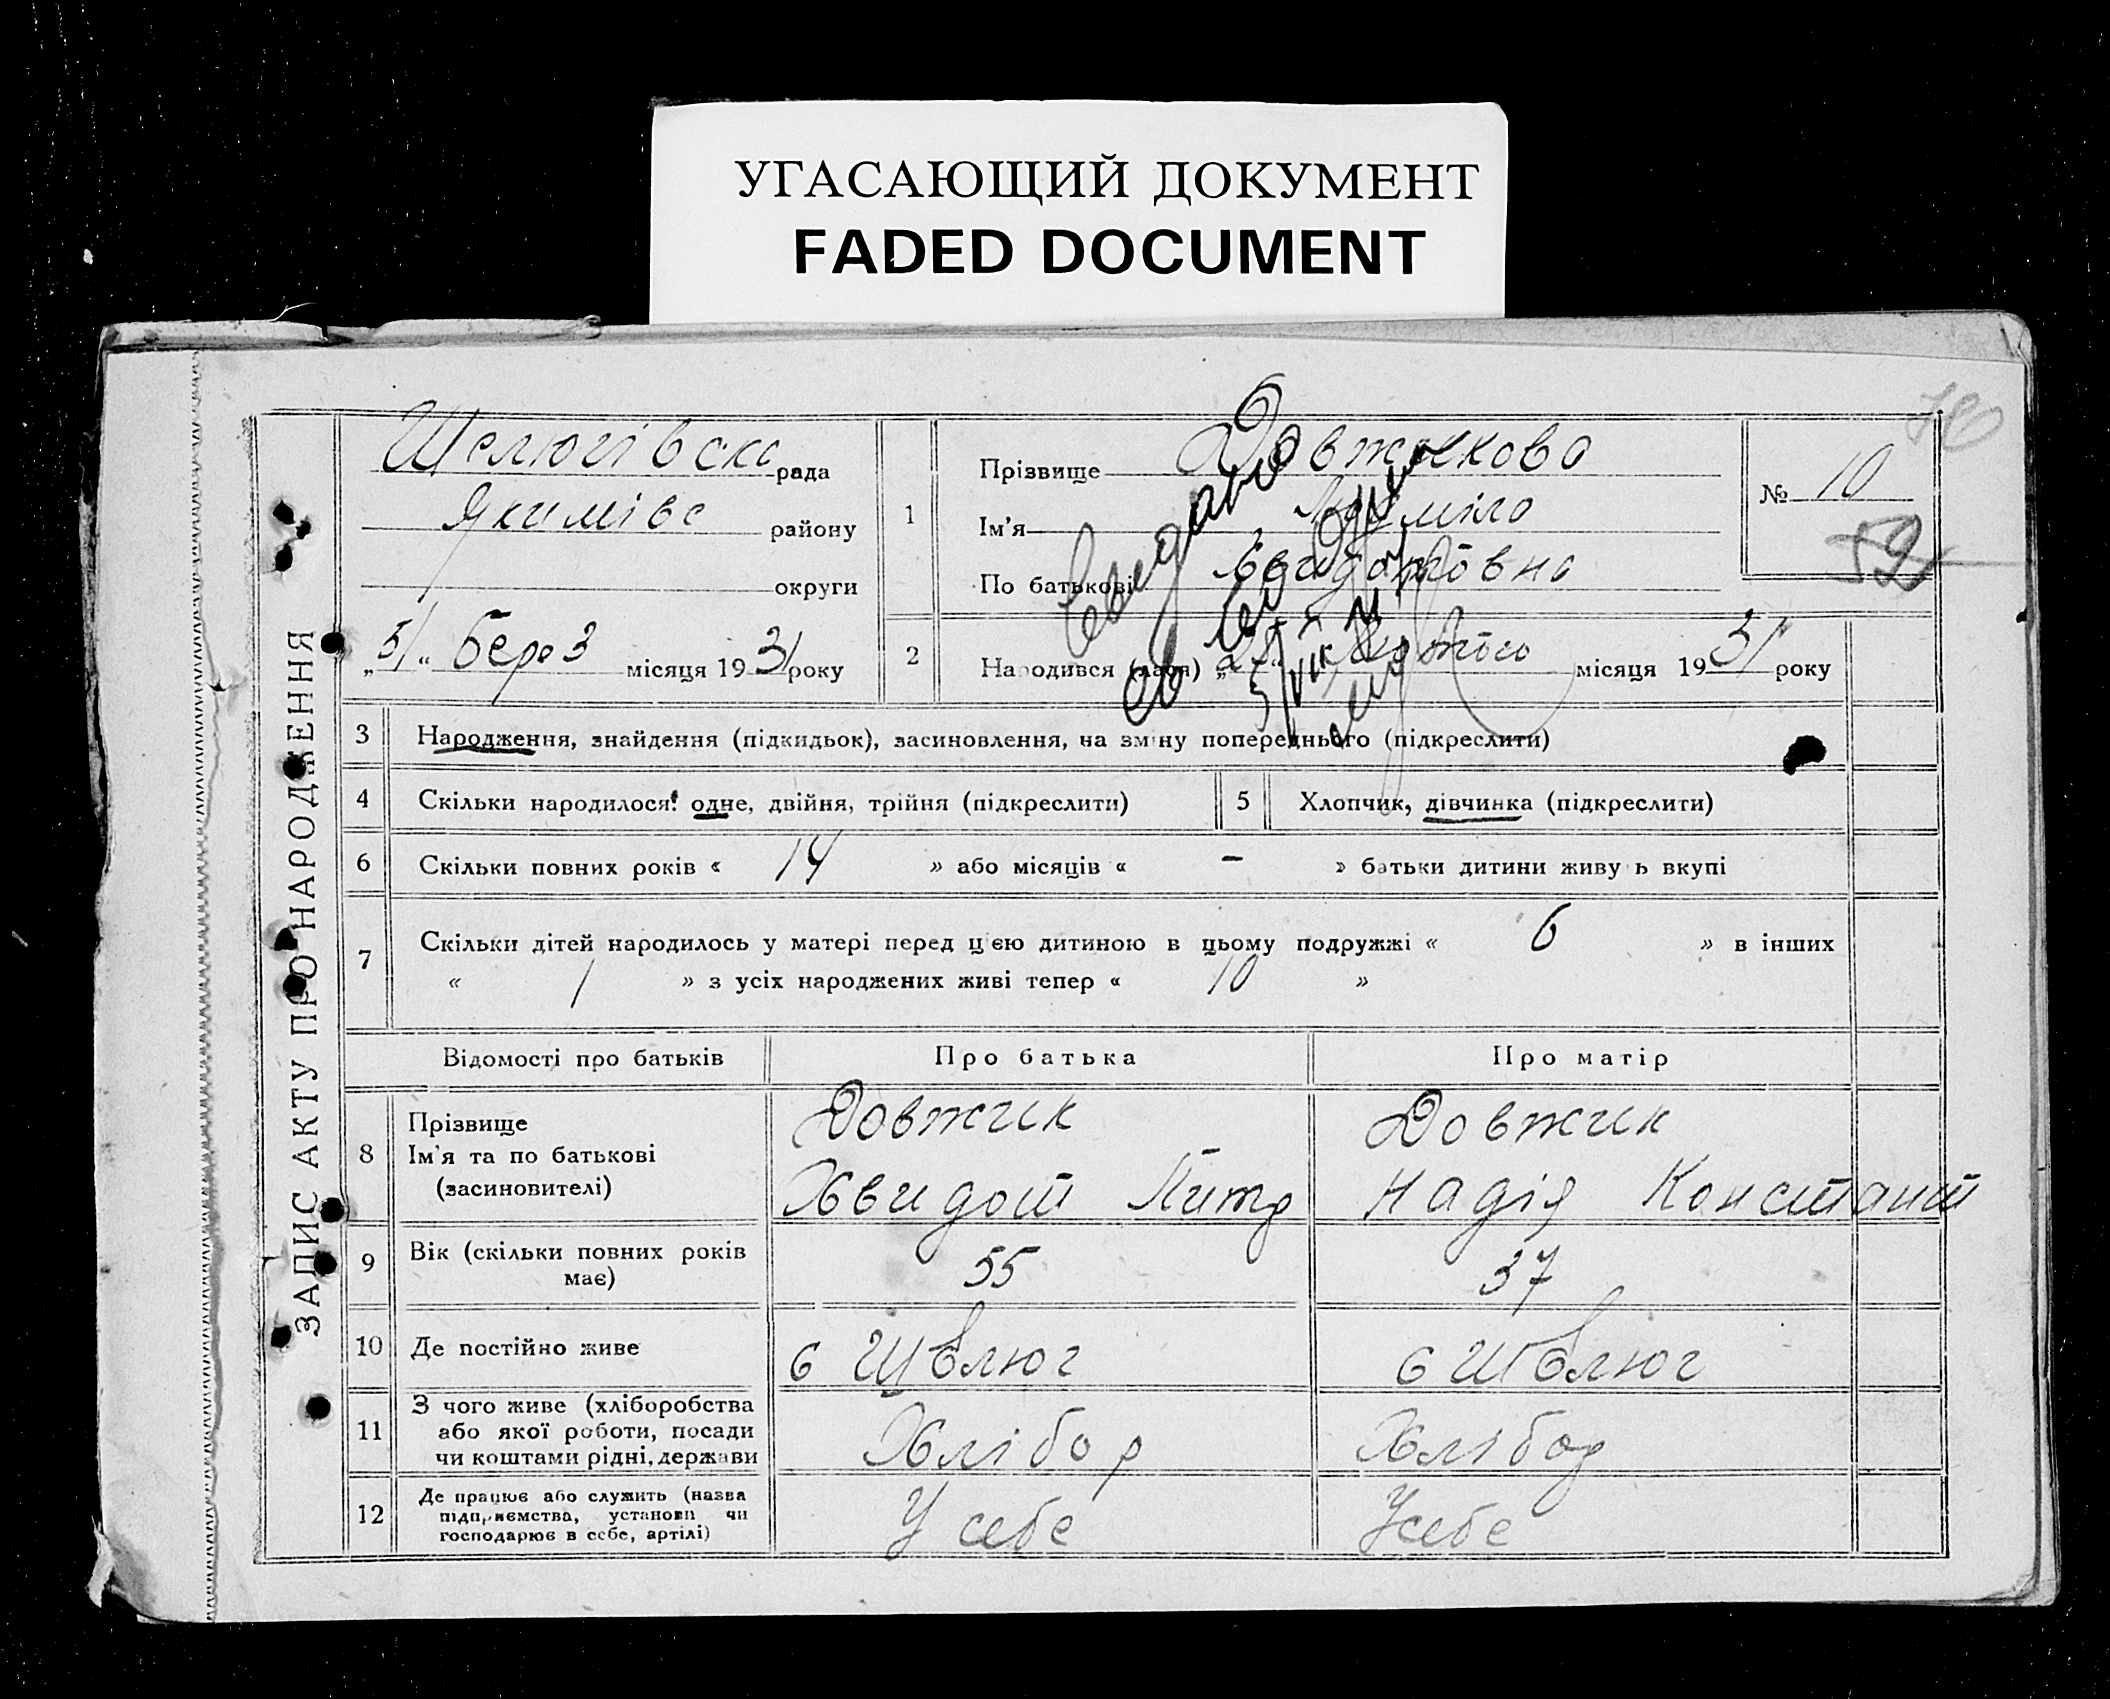 УГАСАЮЩИЙ ДОКУМЕНТ
FADED DOCUMENT
ЗАПИС АКТУ ПРО НАРОДЖЕННЯ
Шелюгівска рада
Якимівс району
округи
„5“ берез місяця 1931 року
1
Прізвище Довжикова
Ім'я Людміла
По батькові
№ 10
52
2
Народився (лася) „ “ Лютого місяця 1931 року
3 Народження, знайдення (підкидьок), засиновлення, на зміну попереднього (підкреслити)
4 Скільки народилося: одне, двійня, трійня (підкреслити)
5 Хлопчик, дівчинка (підкреслити)
6 Скільки повних років « 14 » або місяців « - » батьки дитини живуть вкупі
7 Скільки дітей народилось у матері перед цією дитиною в цьому подружжі « 6 » в інших
« 1 » з усіх народжених живі тепер « 10 »
Відомості про батьків Про батька Про матір
8 Прізвище
Ім'я та по батькові
(засиновителі)
Довжик
Хвидот Питр
Довжик
Надія Констант
9 Вік (скільки повних років
має)
55
37
10 Де постійно живе
с Шелюг
с Шелюг
11 З чого живе (хліборобства
або якої роботи, посади
чи коштами рідні, держави
Хлібор
Хлібор
12 Де працює або служить (назва
підприємства, установи чи
господарює в себе, артілі)
У себе
У себе